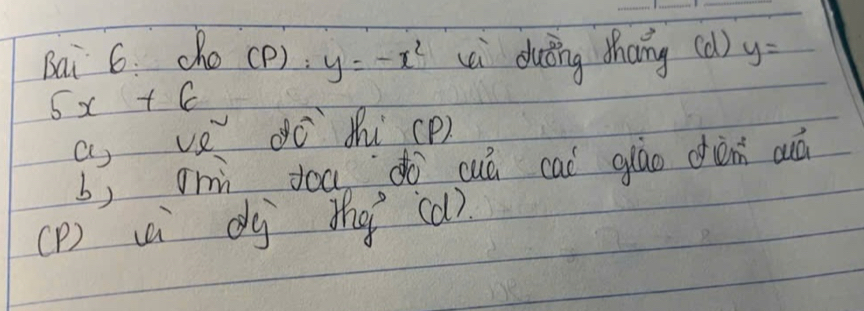 Bài 6: cho (P): y = -x² và đường thẳng (d) y =
5x + 6
a, vẽ đồ thị (P)
b, Tìm toạ độ của các giao điểm của
(P) và đg thg (d).